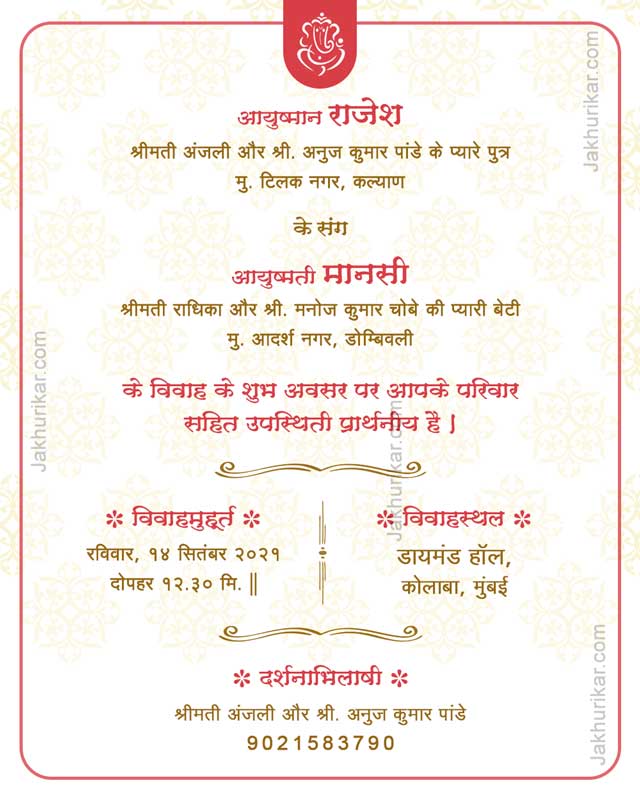 आयुष्मान राजेश
श्रीमती अंजली और श्री. अनुज कुमार पांडे के प्यारे पुत्र
मु. टिलक नगर, कल्याण
के संग
आयुष्मती मानसी
श्रीमती राधिका और श्री. मनोज कुमार चोबे की प्यारी बेटी
मु. आदर्श नगर, डोम्बिवली
के विवाह के शुभ अवसर पर आपके परिवार
सहित उपस्थिती प्रार्थनीय है |
✼ विवाहमुहूर्त ✼
रविवार, १४ सितंबर २०२१
दोपहर १२.३० मि. ||
✼ विवाहस्थल ✼
डायमंड हॉल,
कोलाबा, मुंबई
✼ दर्शनाभिलाषी ✼
श्रीमती अंजली और श्री. अनुज कुमार पांडे
9021583790
Jakhurikar.com
Jakhurikar.com
Jakhurikar.com
Jakhurikar.com